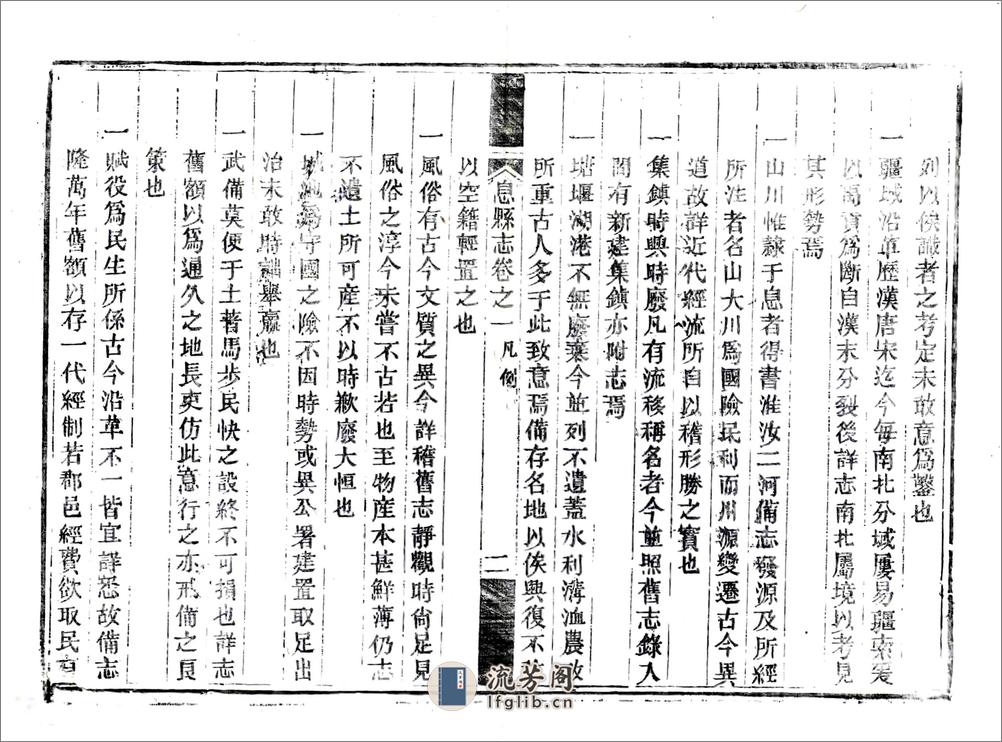 列以俟識者之考定未敢意爲鑿也
一疆域沿革歷漢唐宋迄今每南北分域屢易疆索爰
以爲斷自漢末分裂後詳志南北屬境以考見
其形勢焉
一山川惟隷于息者得書淮汝二河備志發源及所經
所注者名山大川爲國險民利而川源變遷古今異
道故詳近代經流所自以稽形勝之實也
一集鎮時興時廢凡有流移稱名者今並照舊志錄入
間有新建集鎮亦附志焉
一塘堰湖港不無廢棄今並列不遺蓋水利溝洫農政
所重古人多于此致意焉備存名地以俟興復不
息縣志卷之一 凡例 二
以空籍輕置之也
一風俗有古今文質之異今詳稽舊志靜觀時尙足見
風俗之淳今未嘗不古若也至物産本甚鮮薄仍志
不遺土所可産不以時歉廢大恒也
一城池守國之險不因時勢或異公署建置取足出
治未敢時詘舉羸也
一武備莫便于土著馬步民快之設終不可損也詳志
舊額以爲通久之地長吏仿此意行之亦戒備之良
策也
一賦役爲民生所係古今沿革不一皆宜詳悉故備志
隆萬年舊額以存一代經制若郡邑經費欲取民有
流芳阁
lfglib.cn